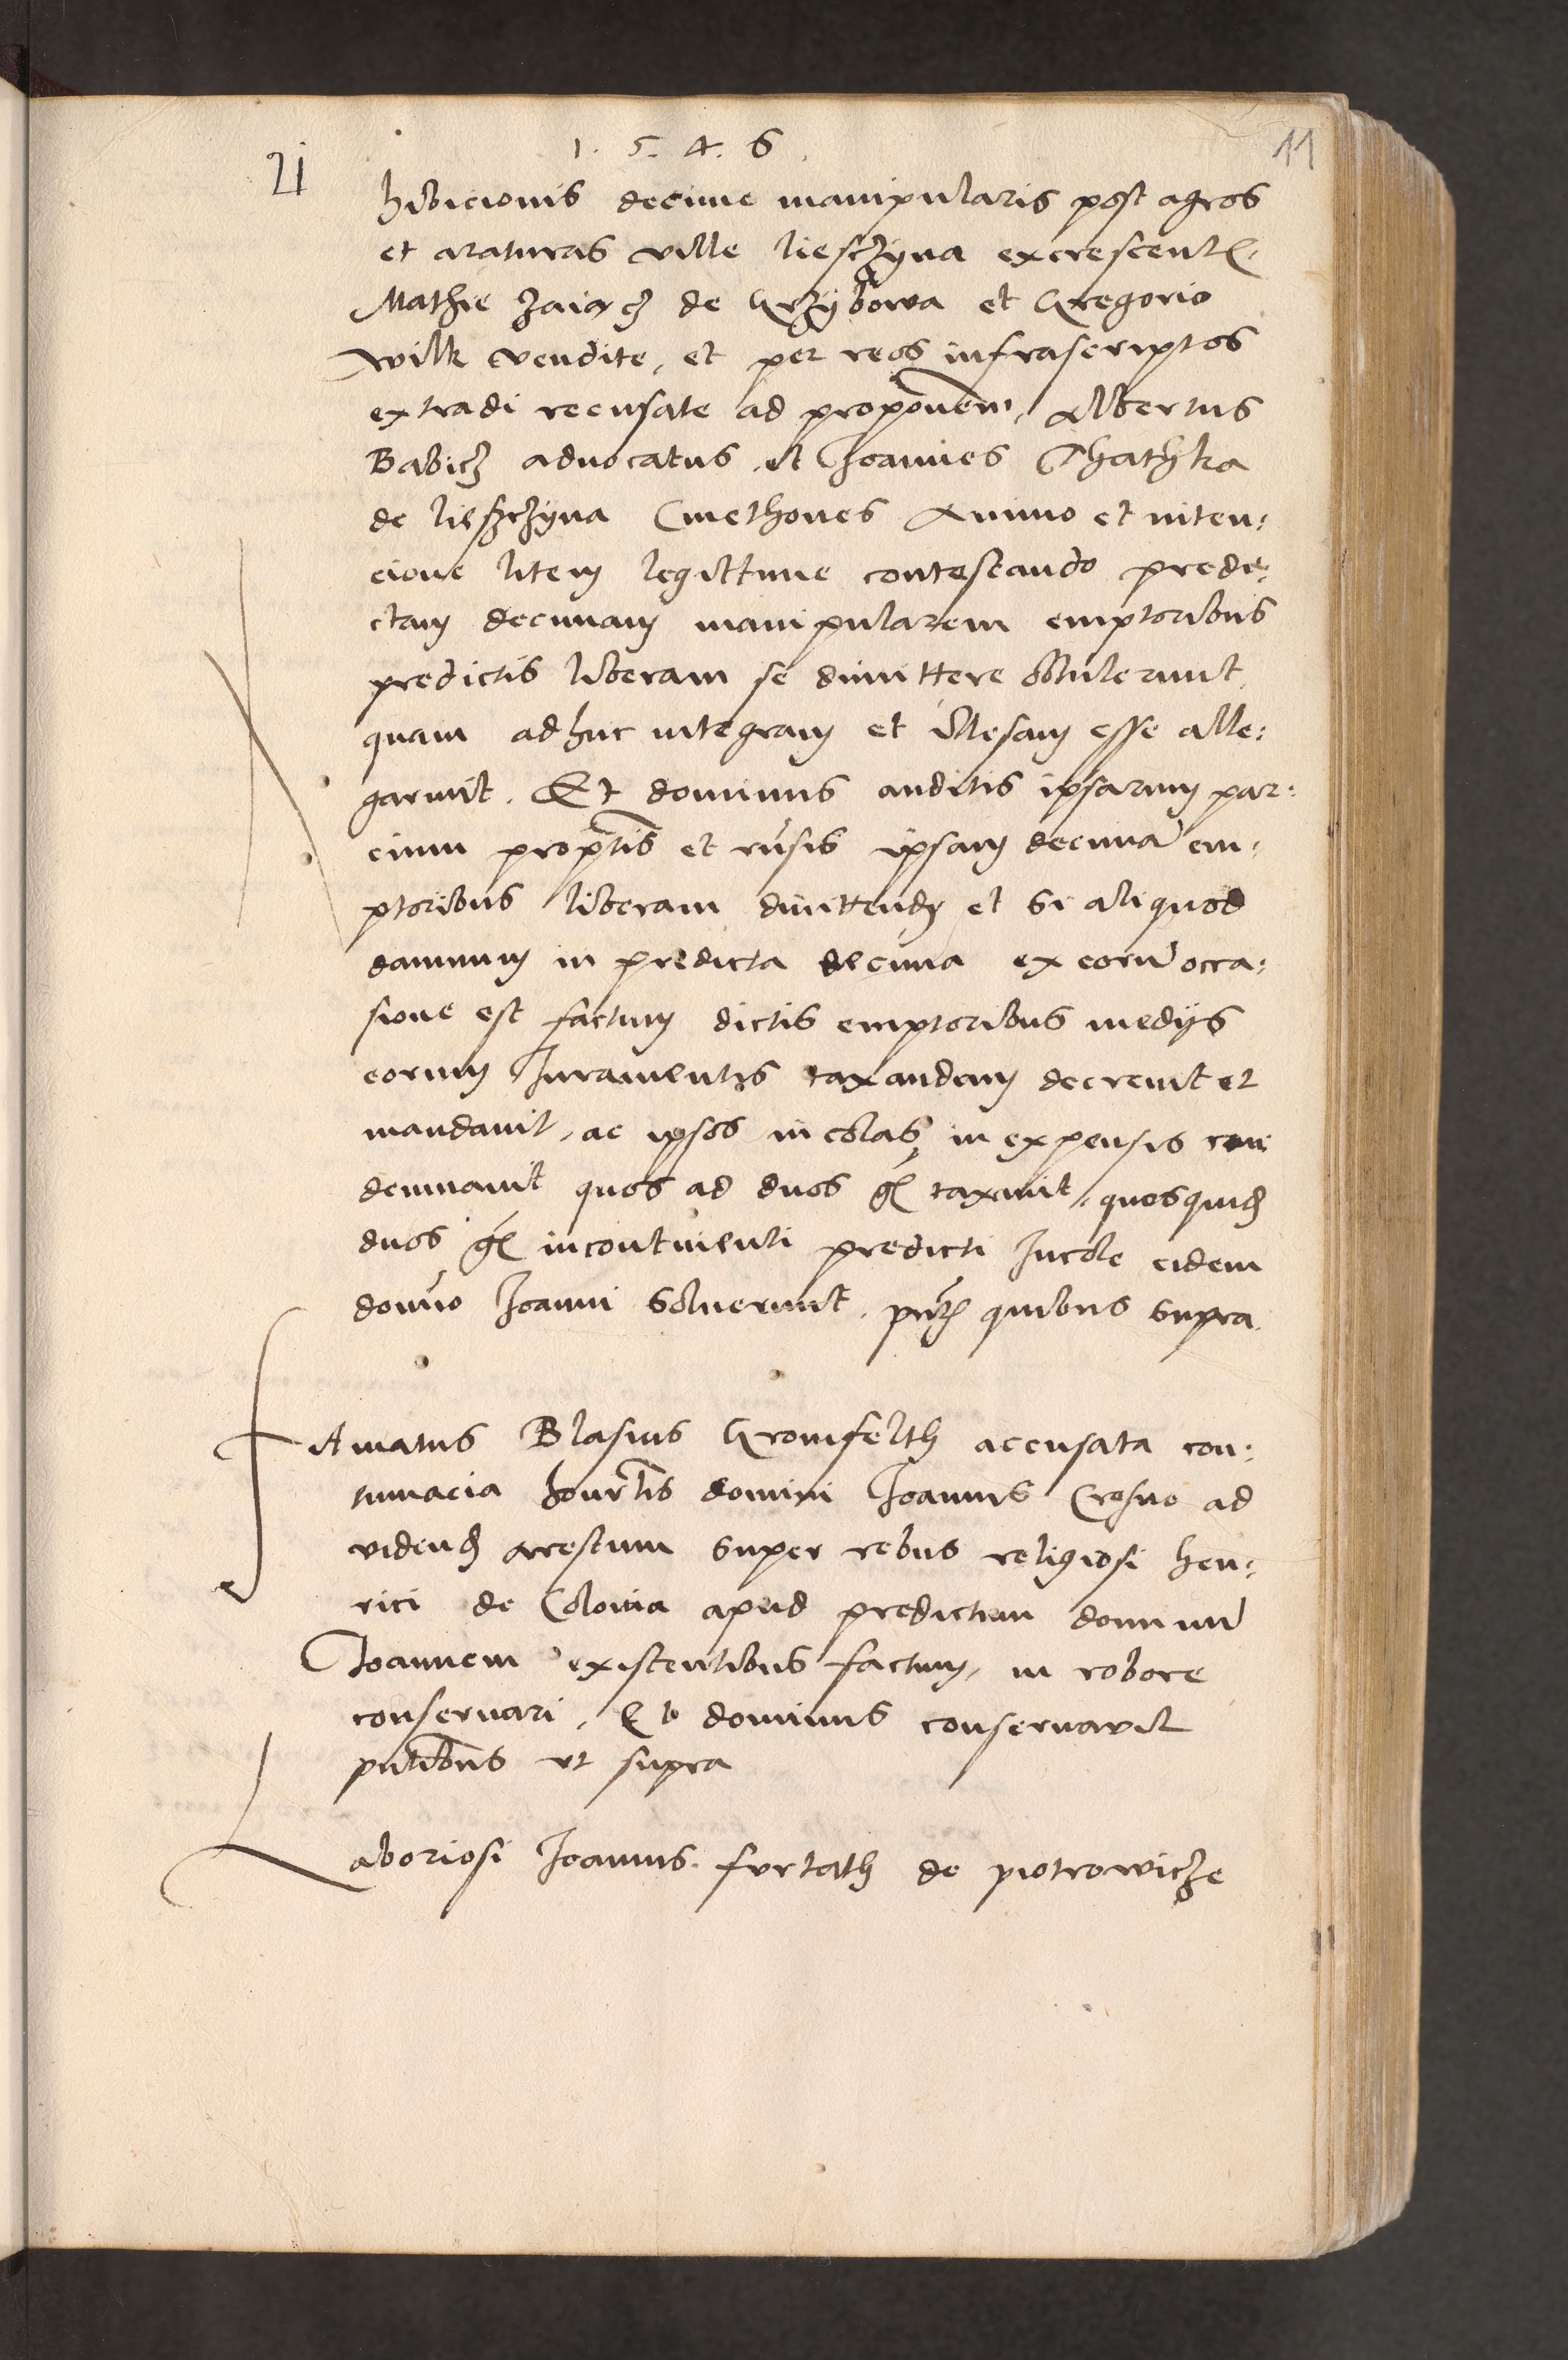 1. 5. 4. 6
11
21
hibicionis decime manipularis post agros
et araturas ville liesczyna excrescent
Mathie Zaiacz de Grzybowa et Gregorio
wilk vendite, et per reos infrascriptos
extradi recusate ad proponem, Albertus
Babicz advocatus et Joannes Thathka
de lieszczyna Cmethones Animo et inten:
cione litem legittime contestando prede:
ctam decimam manipularem emptoribus
predictis liberam se dimittere obtulerunt
quam adhuc integram et illesam esse alle:
garunt. Et dominus auditis ipsarum par:
cium propntis et rusis ipsam decima em:
ptoribus liberam dimittend et si aliquod
damnum in predicta decima ex eoru occa:
sione est factum dictis emptoribus medys
eorum Juramentis taxandam decrevit et
mandavit, ac ipsos incolas in expensis con
demnavit quos ad duos gs taxavit, quosquid
duos gs incontinenti predicti Incole eidem
domno Joanni Soluerunt, pntz quibus supra.
FAmatus Blasius Gromfelth accusata con:
tumacia honrtis domini Joannis Crosno ad
vidend arestum super rebus religiosi hen:
rici de Colonia apud predictum dominu
Joannem existentibus factum, in robore
conservari, Et dominus conservavit
pntibus ut supra
Laboriosi Joannis furtath de piotrowicze